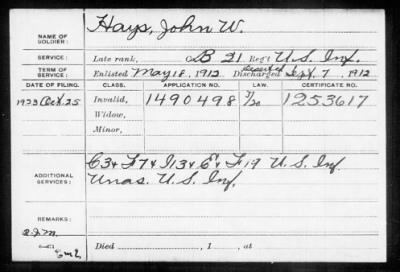 NAME OF SOLDIER: Hays, John W.
SERVICE: Late rank, B 21 Reg't U.S. Inf.
TERM OF SERVICE: Enlisted May 18, 1912 Deserted Discharged Sept. 7, 1912
DATE OF FILING. CLASS. APPLICATION NO. CERTIFICATE NO.
1923 Oct. 25 Invalid, 1490498 1253617
Widow,
Minor,
ADDITIONAL SERVICES: C3 & F7 & I13 & E & F19 U.S. Inf.
Unas. U.S. Inf.
REMARKS:
Died , 1 , at